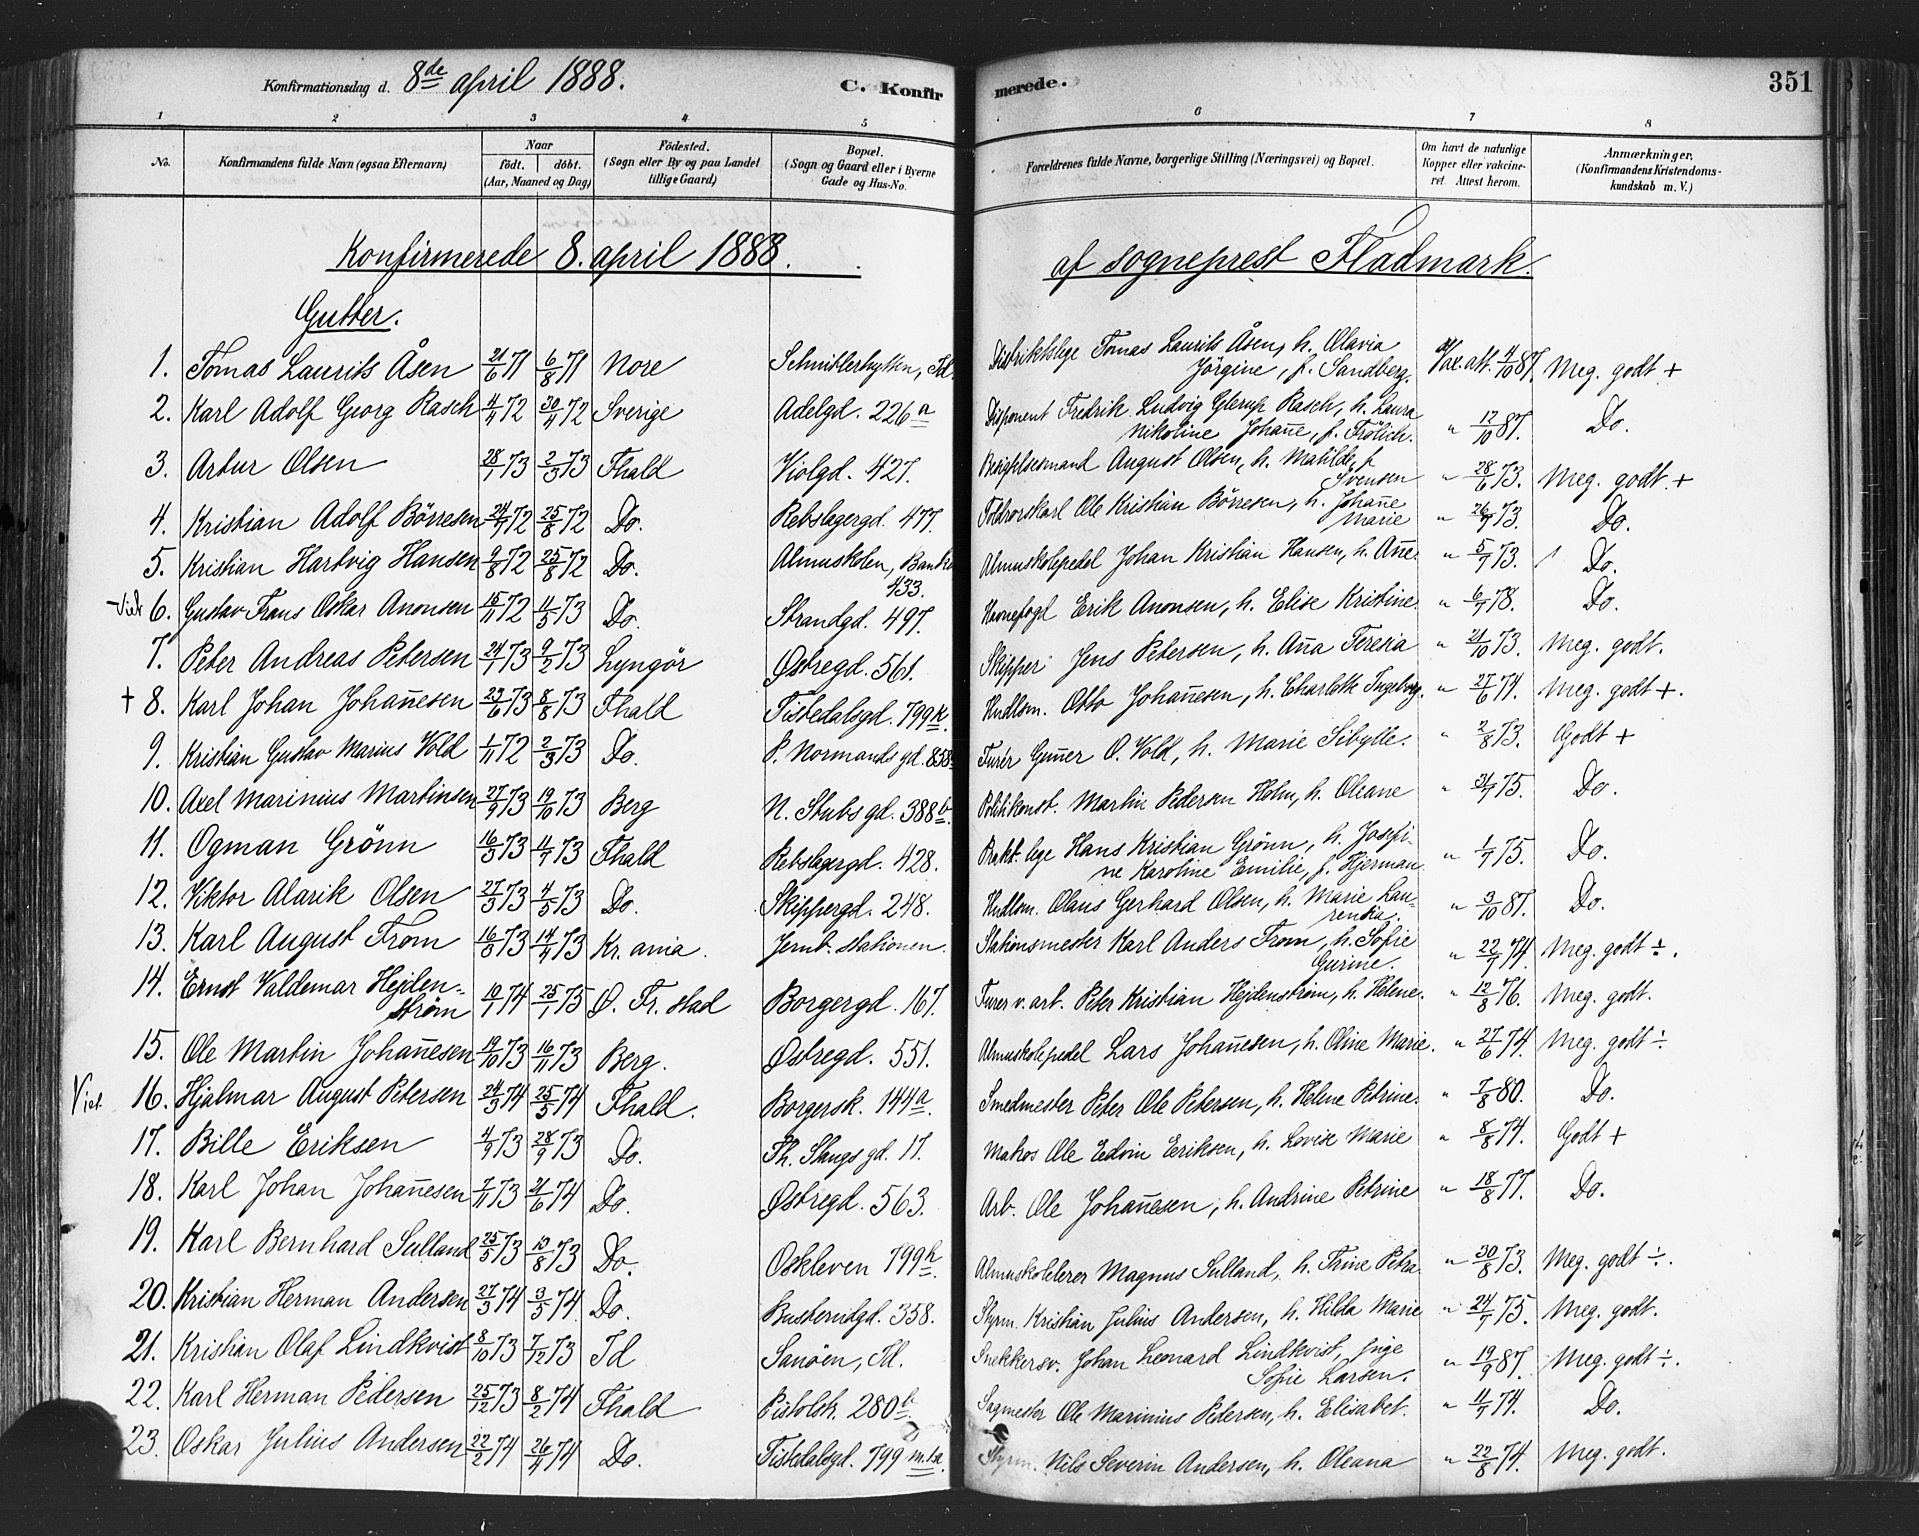 Konfirmationsdag d. 8de april 1888. C. Konfirmerede. 351
1 2 3 4 5 6 7 8
No. Konfirmandens fulde Navn (ogsaa Efternavn) Naar født. døbt. (Aar, Maaned og Dag) Fødested. (Sogn eller By og paa Landet tillige Gaard) Bopæl. (Sogn og Gaard eller i Byerne Gade og Hus-No. Forældrenes fulde Navne, borgerlige Stilling (Næringsvei) og Bopæl. Om havt de naturlige Kopper eller vakcineret. Attest herom. Anmærkninger. (Konfirmandens Kristendomskundskab m. V.)
Konfirmerede 8. april 1888. af sogneprest Fladmark.
Gutter.
1. Tomas Laurits Åsen 21/6 71 6/8 71 Nore Schnitlerhytten, Id. Distriktslege Tomas Laurits Åsen, h. Olavia Jörgine, f. Sandberg. Vax. att. 4/10 87. Meg. godt +
2. Karl Adolf Georg Rasch 4/4 72 30/4 72 Sverige Adelgd. 226a Disponent Fredrik Ludvig Glerup Rasch, h. Laura Nikoline Johañe, f. Frölich. " 12/10 87. Do.
3. Artur Olsen 28/1 73 2/3 73 Fhald Violgd. 427. August Olsen, h. Matilde, f. Svensen " 28/6 73. Meg. godt. +
4. Kristian Adolf Börresen 24/7 72 25/8 72 Do. Rebslagergd. 477. Toldrorskarl Ole Kristian Börresen, h. Johañe Marie " 26/7 73. Do.
5. Kristian Hartvig Hansen 9/8 72 25/8 72 Do. Almuskolen, Banken 433. Almuskolepedel Johan Kristian Hansen, h. Añe. " 5/7 73. Do.
Viet 6. Gustav Frans Oskar Anonsen 15/11 72 11/5 73 Do. Strandgd. 497. Havnefogd Erik Anonsen, h. Elise Kristine. " 6/7 78. Do.
7. Peter Andreas Petersen 24/1 73 9/2 73 Lyngör Østregd. 561. Skipper Jens Petersen, h. Aña Teresia " 21/10 73. Meg. godt.
† 8. Karl Johan Johañesen 23/6 73 8/8 73 Fhald Tistedalsgd. 799k. Hndlsm. Otto Johañesen, h. Charlotte Ingeborg. " 27/6 74. Meg. godt +.
9. Kristian Gustav Marius Vold 1/11 72 2/3 73 Do. P. Normands gd. 858 Furér Guñer O. Vold, h. Marie Sibylle. " 2/8 73. Godt +
10. Axel Marinius Martinsen 27/9 73 19/10 73 Berg N. Stubs gd. 388b. Politikonst. Martin Pedersen Holm, h. Oleane " 31/7 75. Do.
11. Ogman Grönn 16/3 73 11/7 73 Fhald Rebslagergd. 428. Prakt. lege Hans Kristian Grönn, h. Josefine Karoline Emilie, f. Hjerman " 1/7 75. Do.
12. Viktor Alarik Olsen 27/3 73 4/5 73 Do. Skippergd. 248. Hndlsm. Olaus Gerhard Olsen, h. Marie Laurentia. " 3/10 87. Do.
13. Karl August From 16/3 73 14/4 73 Kr.ania. Jernb. stationen. Stationsmester Karl Anders From, h. Sofie Gurine. " 22/7 74. Meg. godt ÷.
14. Ernst Valdemar Hejdenström 19/7 74 25/1 75 Ø. Fr. stad Borgergd. 167. Furer v. art. Peter Kristian Hejdenström, h. Helene. " 12/8 76. Meg. godt.
15. Ole Martin Johañesen 19/10 73 16/11 73 Berg. Østregd. 551. Almuskolepedel Lars Johañesen, h. Oline Marie. " 27/6 74. Meg. godt ÷
Viet. 16. Hjalmar August Petersen 24/3 74 25/5 74 Fhald. Borgersk. 144a. Smedmester Peter Ole Petersen, h. Helene Petrine. " 7/8 80. Do.
17. Bille Eriksen 4/9 73 28/9 73 Do. Th. Stangs gd. 17. Makos Ole Edvin Eriksen, h. Lovise Marie " 8/8 74. Godt +
18. Karl Johan Johañesen 7/11 73 21/6 74 Do. Østregd. 563. Arb. Ole Johañesen, h. Andrine Petrine " 18/8 77. Do.
19. Karl Bernhard Sulland 25/5 73 10/8 73 Do. Oskleven 799h. Almuskolelerer Magnus Sulland, h. Trine Petra " 30/8 73. Meg. godt ÷.
20. Kristian Herman Andersen 27/3 74 3/5 74. Do. Buskerudgd. 358. Styrm. Kristian Julius Andersen, h. Hilda Marie " 24/7 75. Meg. godt.
21. Kristian Olaf Lindkvist 8/10 73 7/12 73 Id Sanöen, Id. Snekkersv. Johan Leonard Lindkvist, pige Sofie Larsen. " 19/9 87. Meg. godt ÷.
22. Karl Herman Pedersen 25/12 73 8/2 74 Fhald Pistolsk. 280b. Sagmester Ole Marinius Pedersen, h. Elisabet. " 11/7 74. Do.
23. Oskar Julius Andersen 22/2 74 26/4 74 Do. Tistedalsgd. 799 Styrm. Nils Severin Andersen, h. Oleana " 22/8 74. Meg. godt.